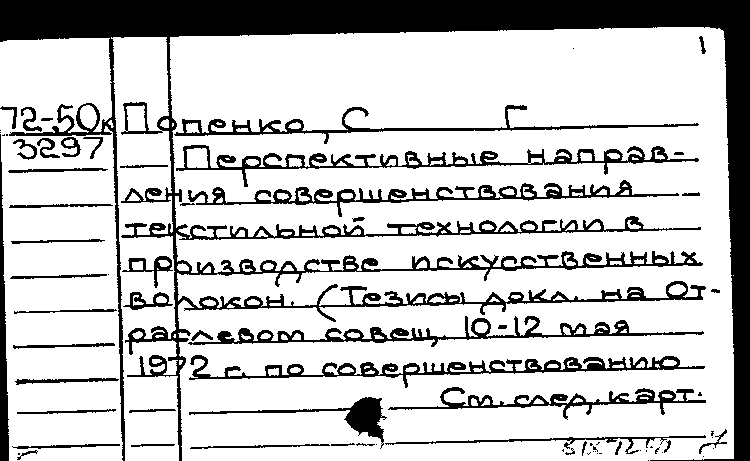 1
72-50к Попенко, С Г
3297 Перспективные направ-
ления совершенствования
текстильной технологии в
производстве искусственных
волокон. (Тезисы докл. на От-
раслевом совещ, 10-12 мая
1972 г. по совершенствованию
См. след. карт.